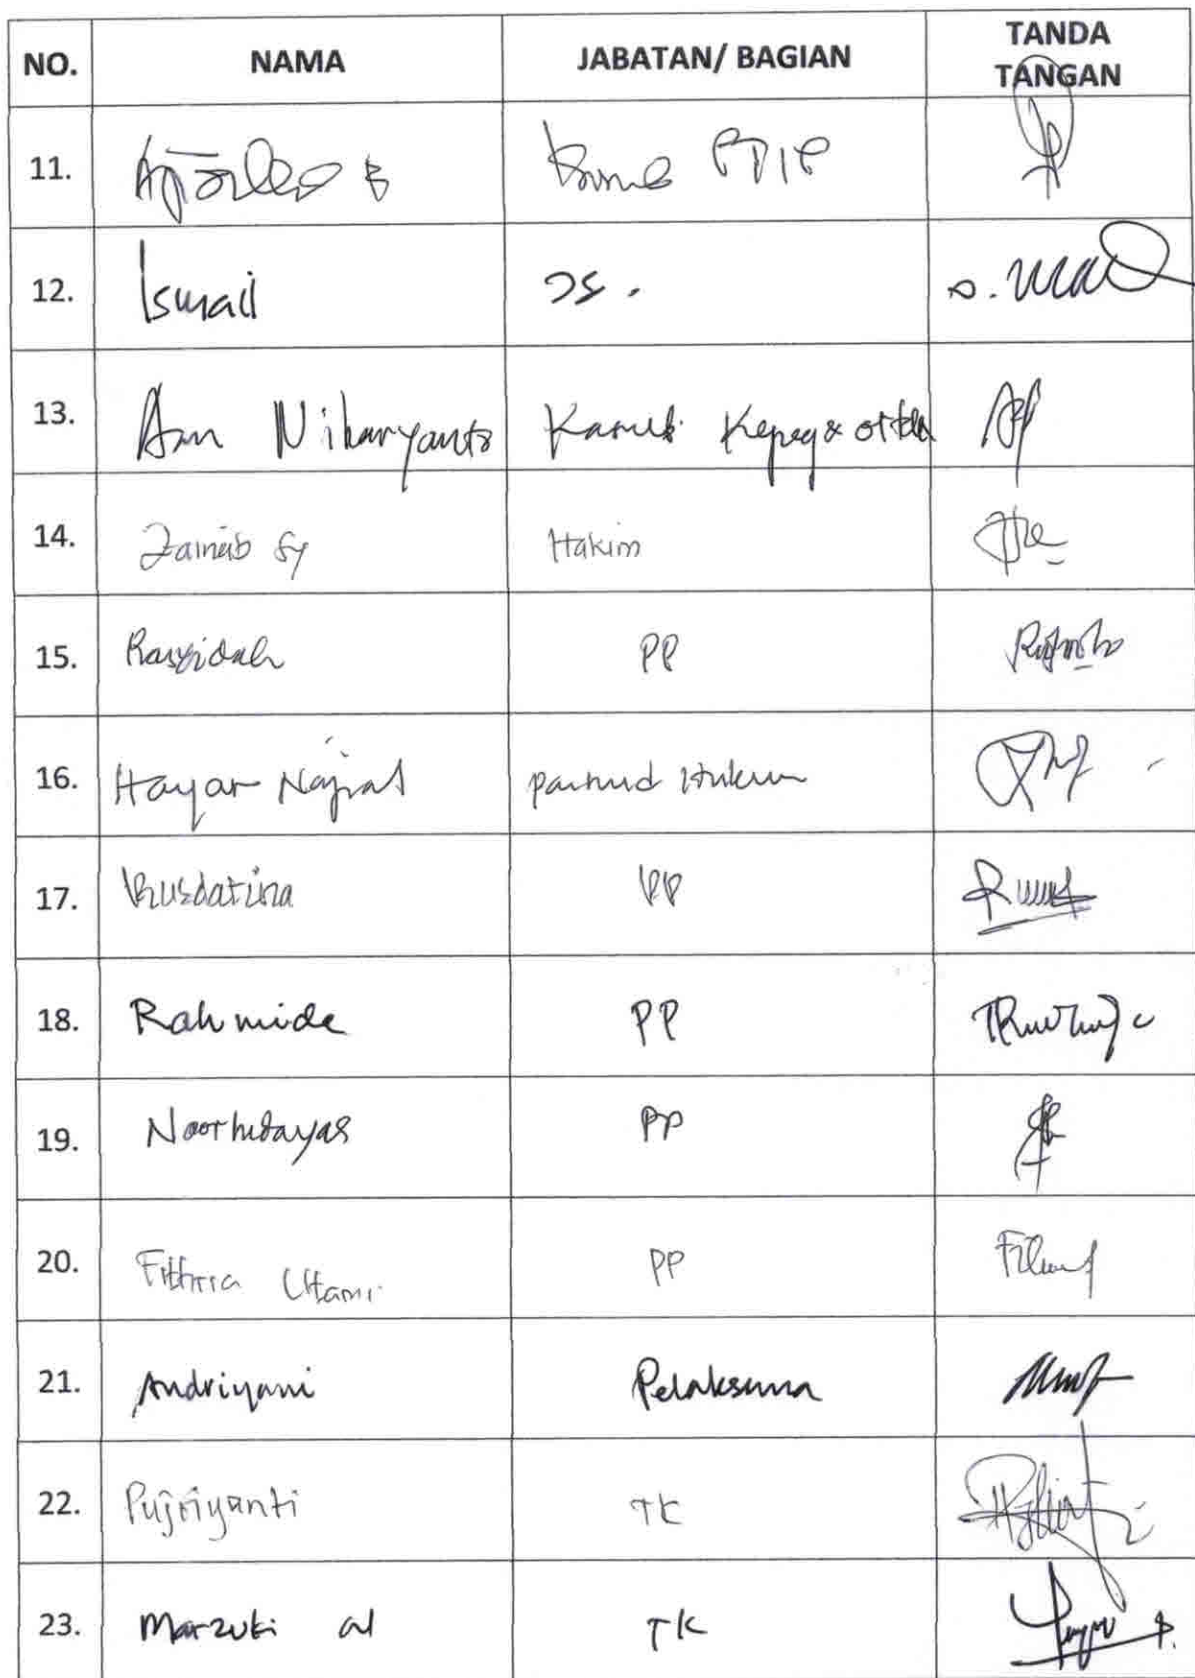 NO. NAMA JABATAN/ BAGIAN TANDA TANGAN
11. PTIP
12. Ismail JS.
13. Niharyanto Kasub Kepeg & ortala
14. Zainab Sy Hakim
15. Rasyidah PP
16. Hayar Najrat panmud Hukum
17. Rusdatina PP
18. Rahmida PP
19. Noorhidayas PP
20. Fithria Utami PP
21. Andriyani Pelaksana
22. Pujriyanti TK
23. Marzuki al TK